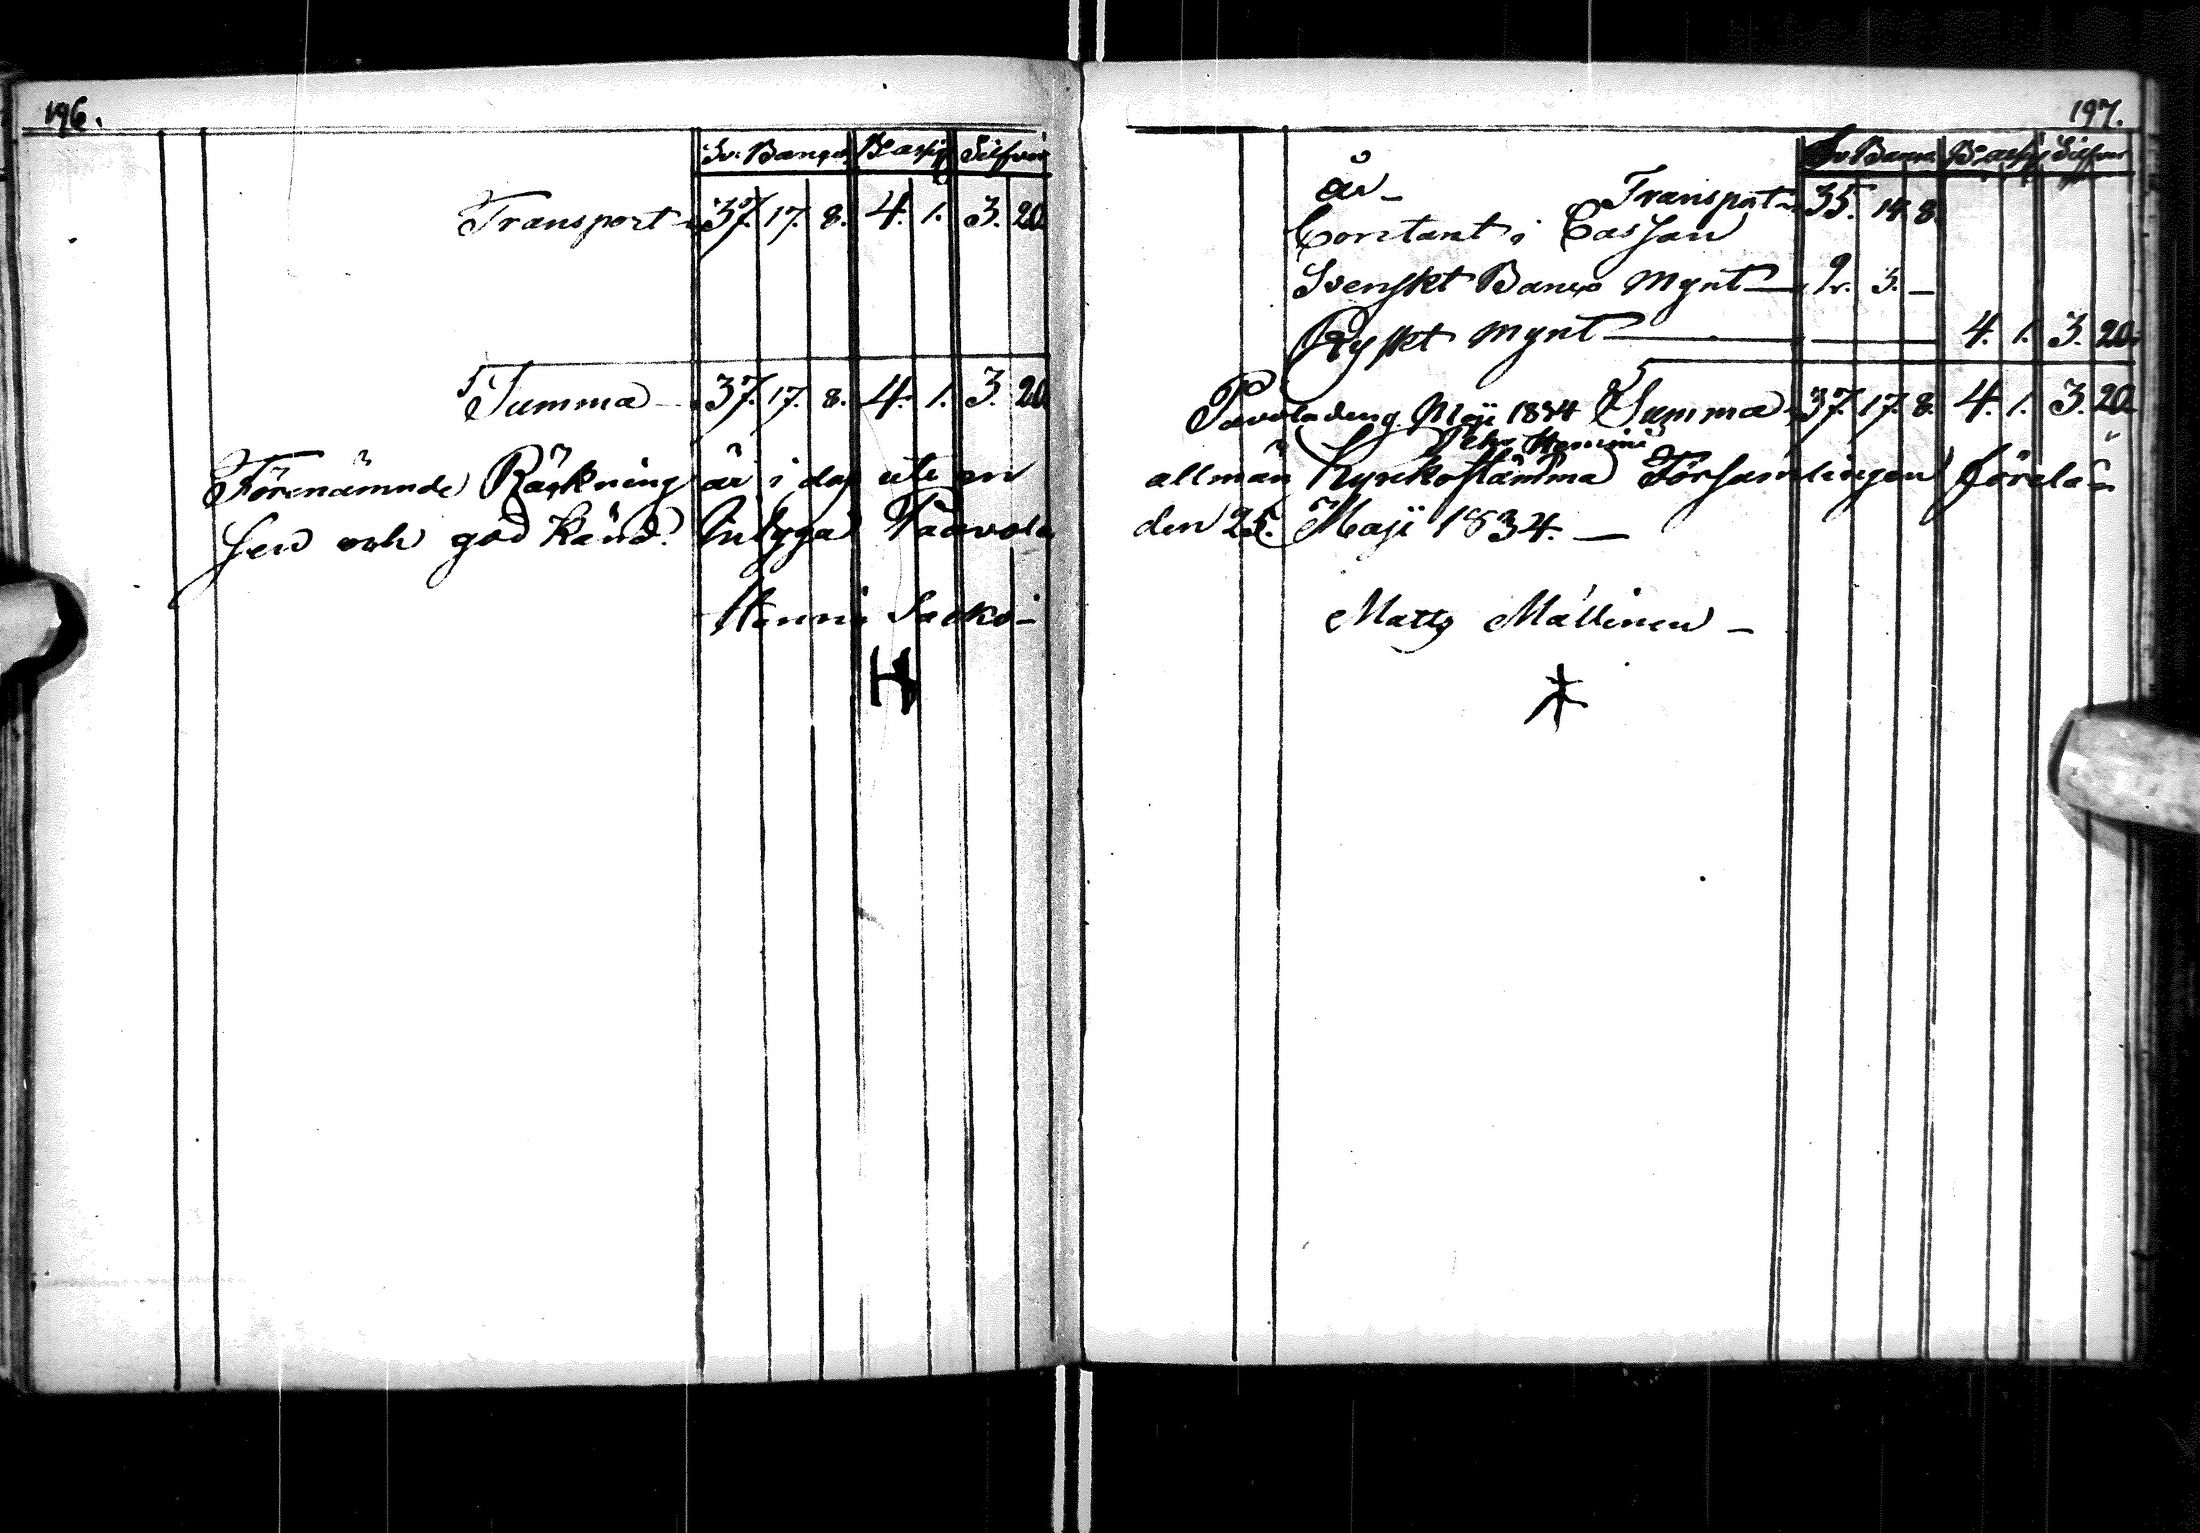 196.
Sv. Banco B. assig Silfver
Transport 37. 17. 8. 4. 1. 3. 20.
Summa 37. 17. 8. 4. 1. 3. 20.
Förenämnde Räkning är i dag uti en
sen och god känd. Intygga Paavola
Hennri Sacko
H
197.
Sv Banco B. assig Silfver
år Transport 35. 14. 8.
Contant i Cassan
Svenskt Banco Mynt 2. 3. —
Ryskt Mynt — 4. 1. 3. 20.
Pavola den 9 Maji 1834 Summa 37. 17. 8. 4. 1. 3. 20.
Pehr
allmän Kyrkostämma Församlingen förelä-
den 25. Maji 1834. —
Matts Mällinen —